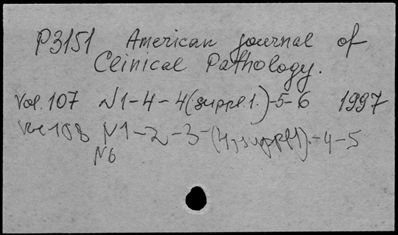 P3151 American journal of
Clinical Pathology.
Vol. 107 N1-4-4(suppl 1.)-5-6 1997
Vol 108 N1-2-3-(4,suppl1).-4-5
N6